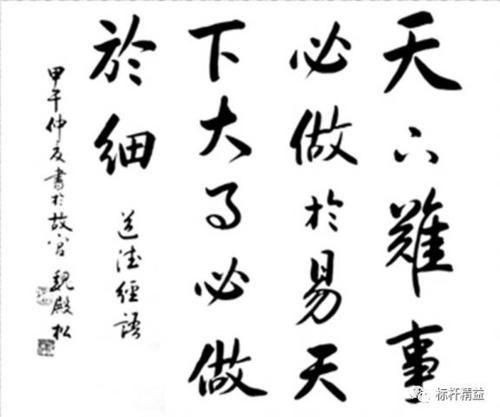 天下難事
必做於易天
下大事必做
於細
道德經語
甲午仲夏書於故宮 魏殿松
标杆精益